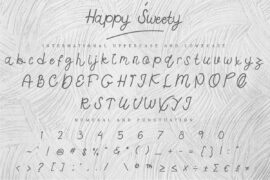 Happy Sweety
INTERNATIONAL UPPERCASE AND LOWERCASE
abcdefghijklmnopqrstuvwxyz
ABCDEFGHIJKLMNOPQ
RSTUVWXYZ
NUMERAL AND PUNCTUATION
1 2 3 4 5 6 7 8 9 0